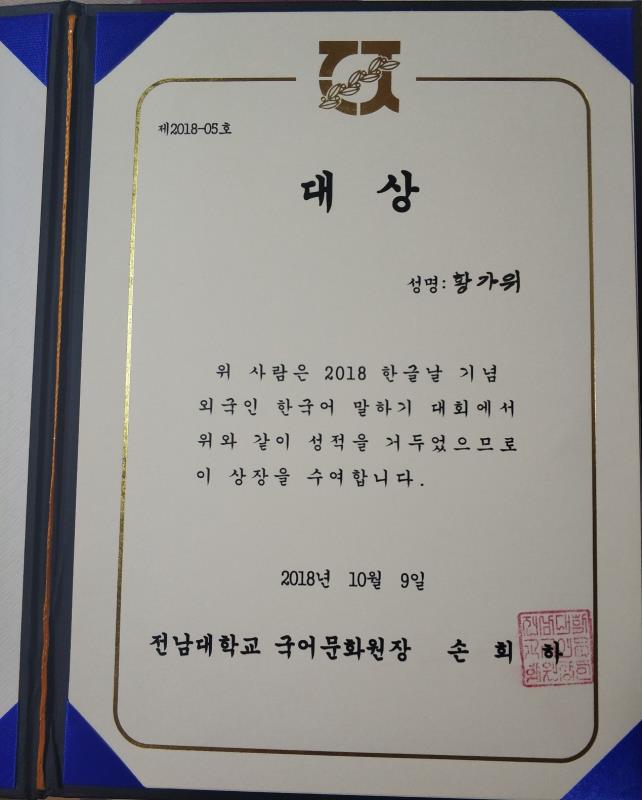 제2018-05호
대 상
성명: 황가위
위 사람은 2018 한글날 기념
외국인 한국어 말하기 대회에서
위와 같이 성적을 거두었으므로
이 상장을 수여합니다.
2018년 10월 9일
전남대학교 국어문화원장 손 희 하